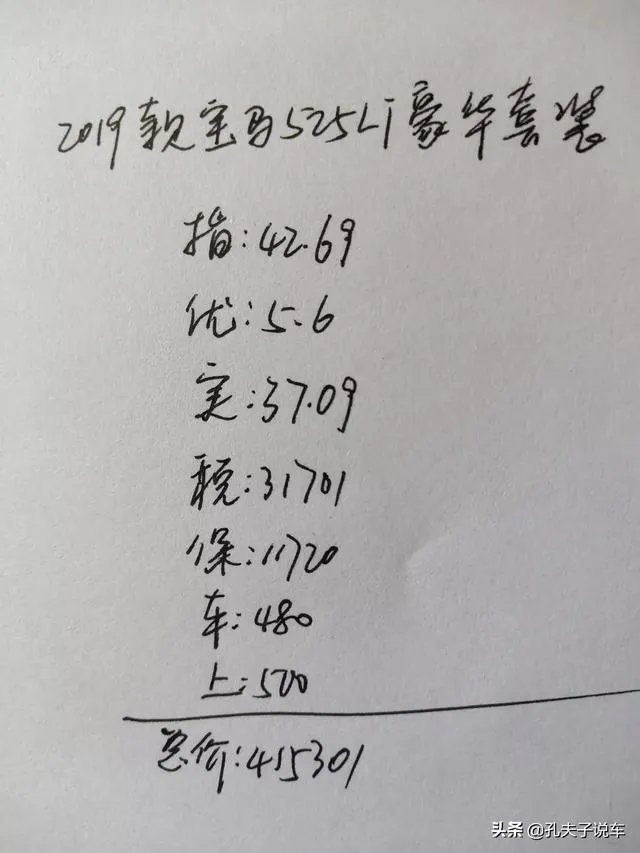 2019款宝马525Li豪华套装
指:42.69
优:5.6
实:37.09
税:31701
保:11720
车:480
上:500
总价:415301
头条 @孔夫子说车